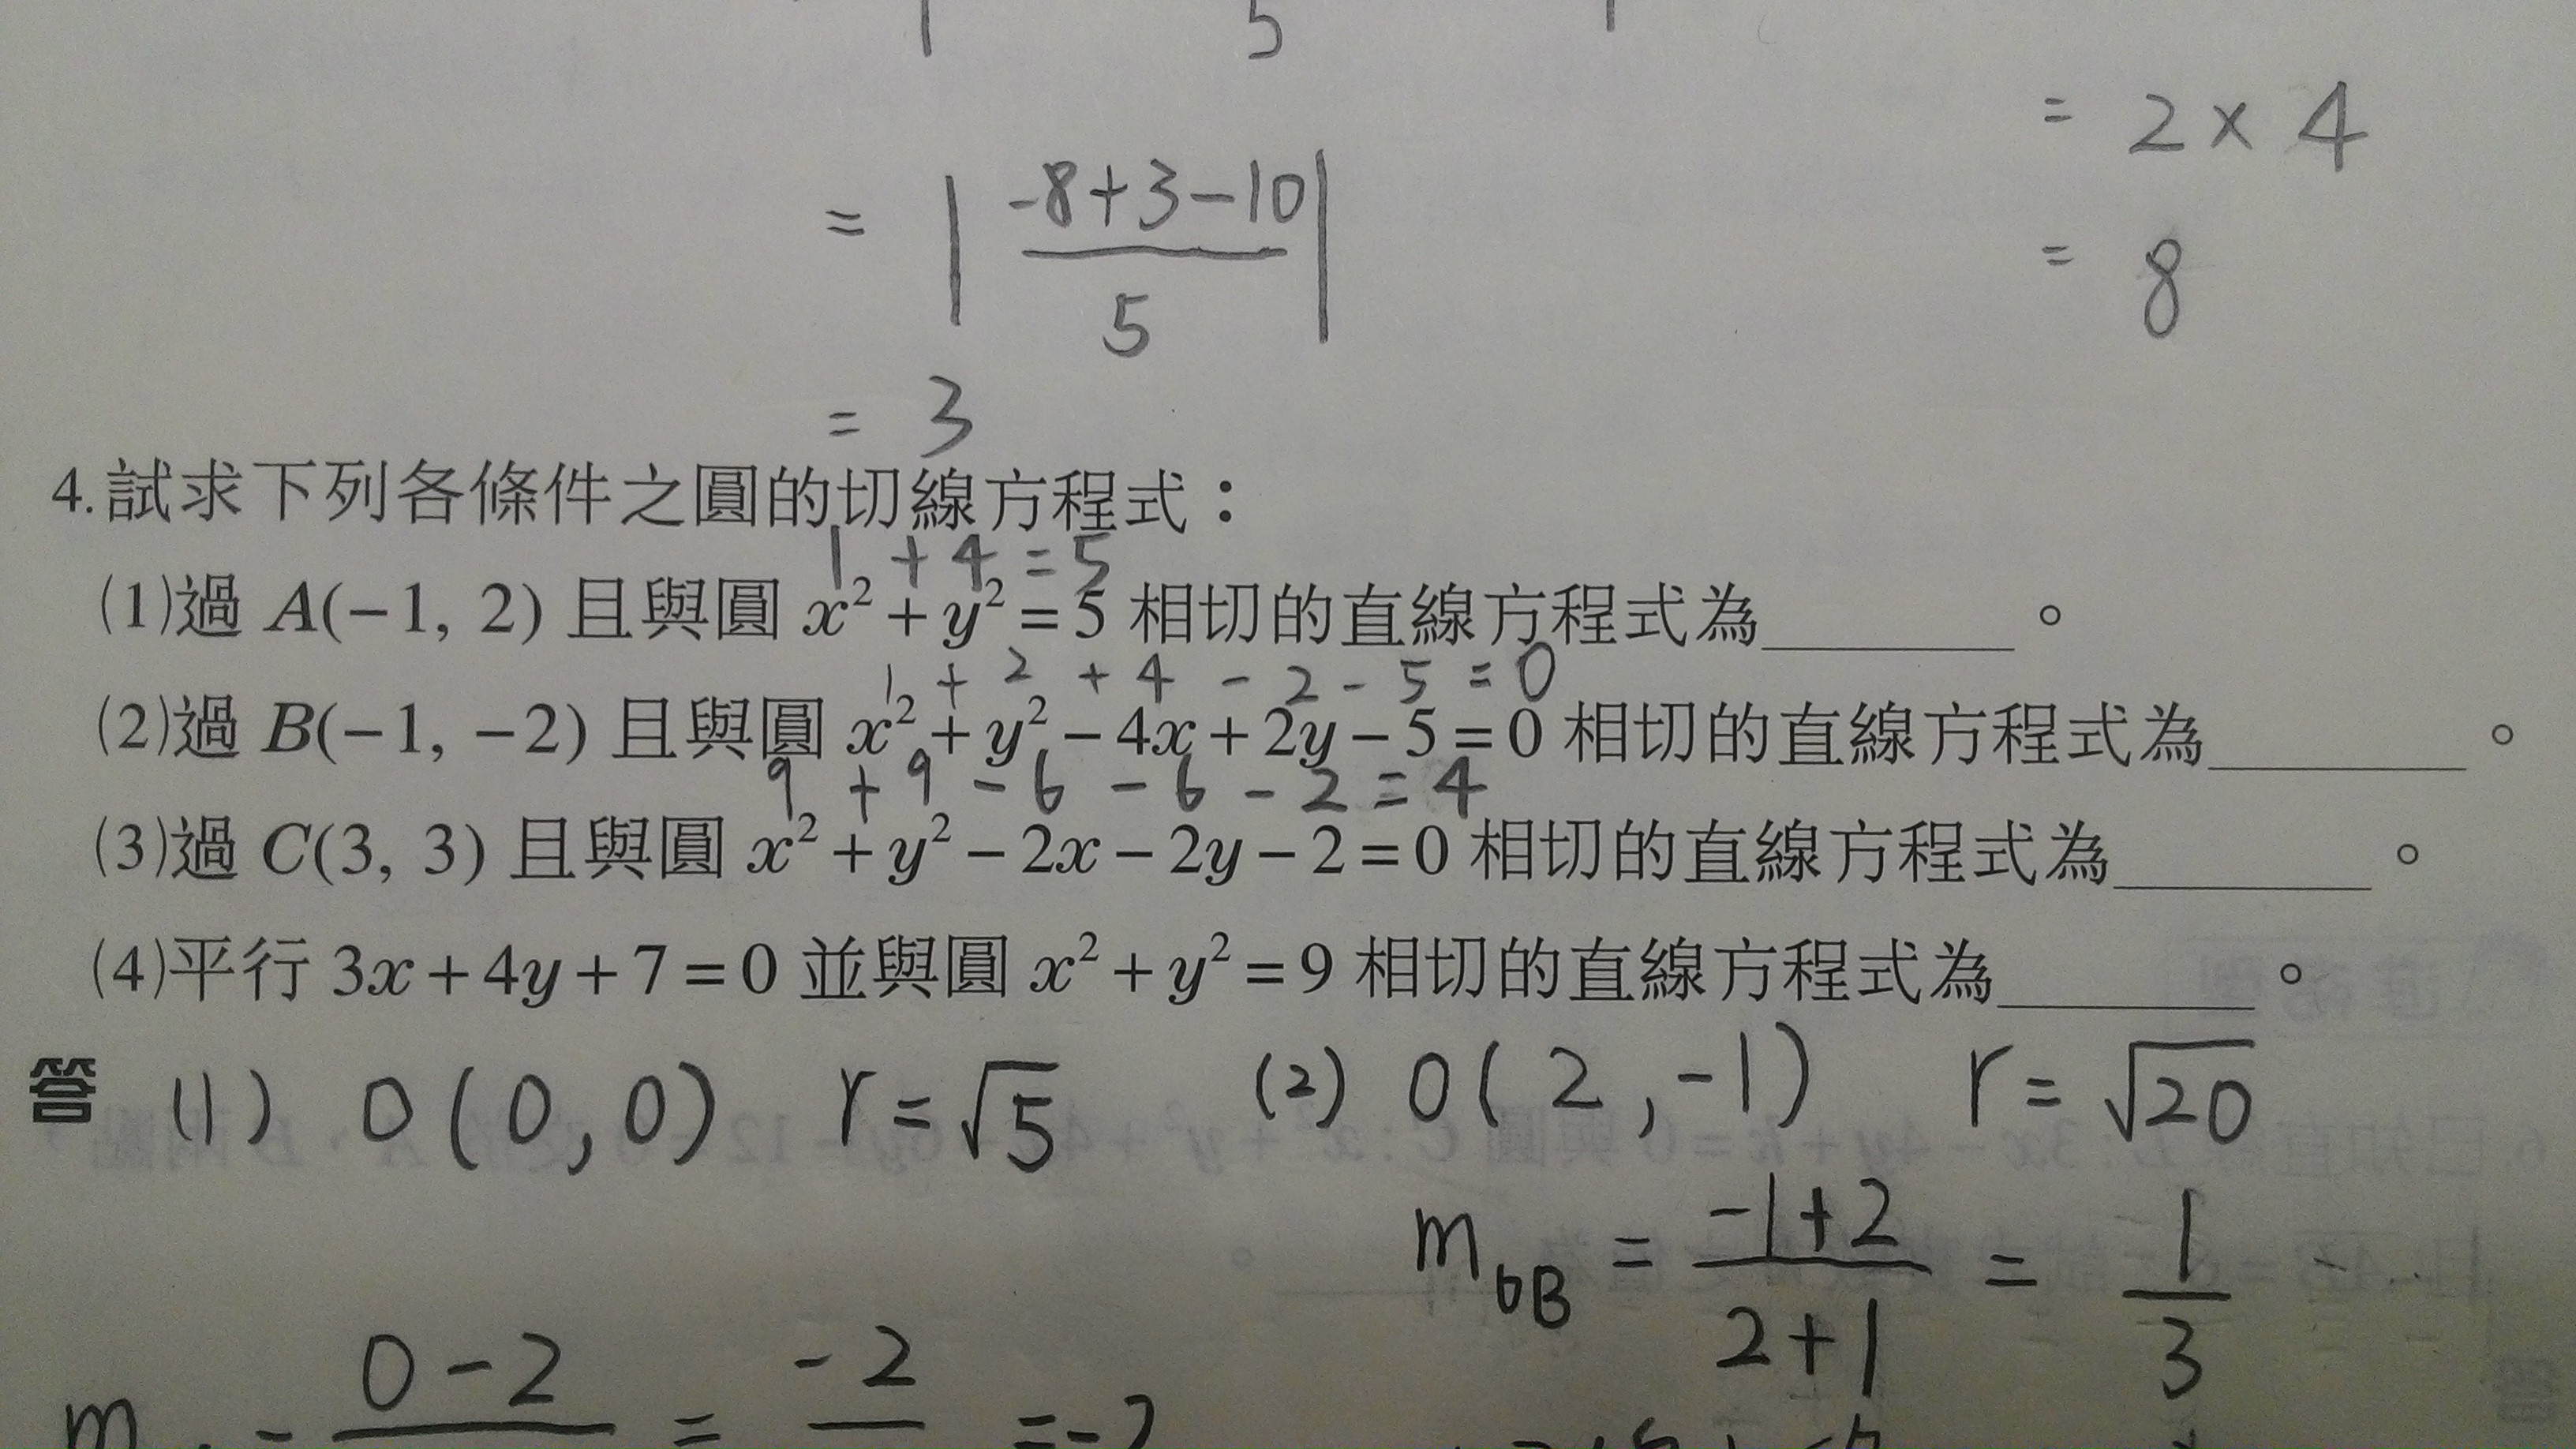 = 2 × 4
= | (-8+3-10)/5 |
= 8
= 3
4.試求下列各條件之圓的切線方程式：
1 + 4 = 5
(1)過 A(−1, 2) 且與圓 x² + y² = 5 相切的直線方程式為________。
1 + 2 + 4 - 2 - 5 = 0
(2)過 B(−1, −2) 且與圓 x² + y² − 4x + 2y − 5 = 0 相切的直線方程式為________。
9 + 9 - 6 - 6 - 2 = 4
(3)過 C(3, 3) 且與圓 x² + y² − 2x − 2y − 2 = 0 相切的直線方程式為________。
(4)平行 3x + 4y + 7 = 0 並與圓 x² + y² = 9 相切的直線方程式為________。
答 (1) O(0,0) r=√5 (2) O(2,-1) r=√20
m_OB = (-1+2)/(2+1) = 1/3
0-2 = -2 = -2